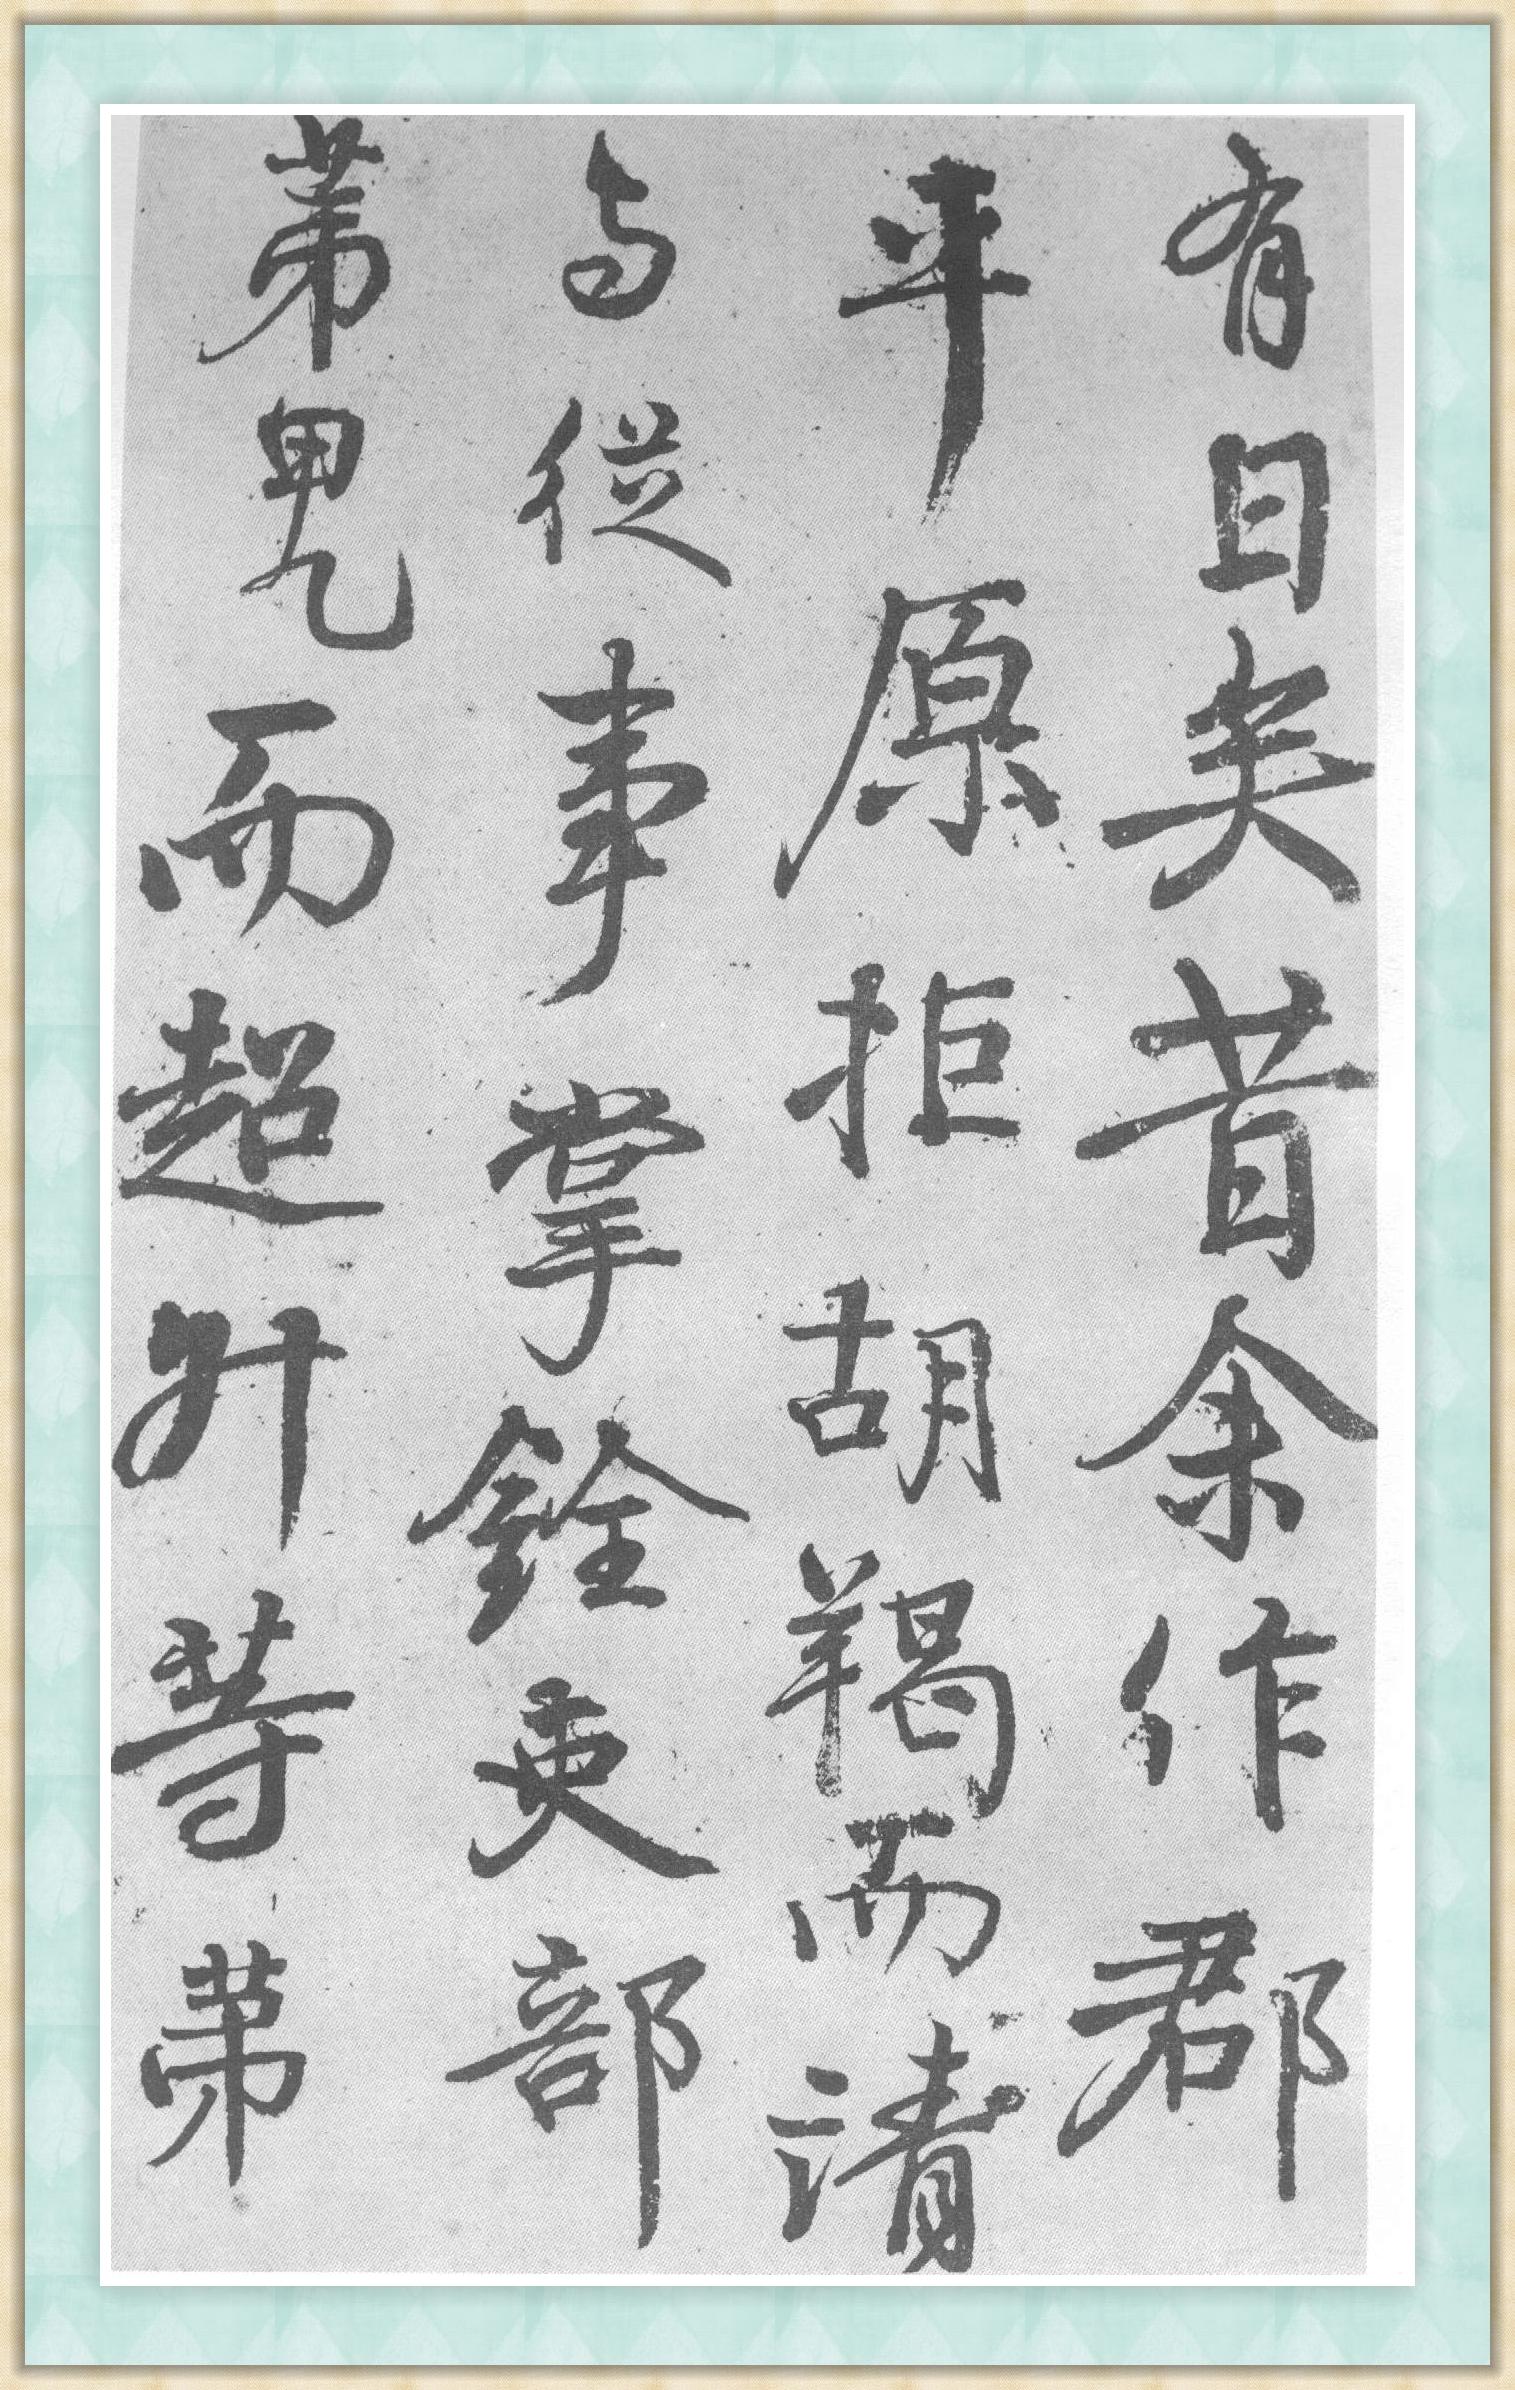 有日矣昔余作郡
平原拒胡羯而清
与從事掌銓吏部
第甲而超升等第